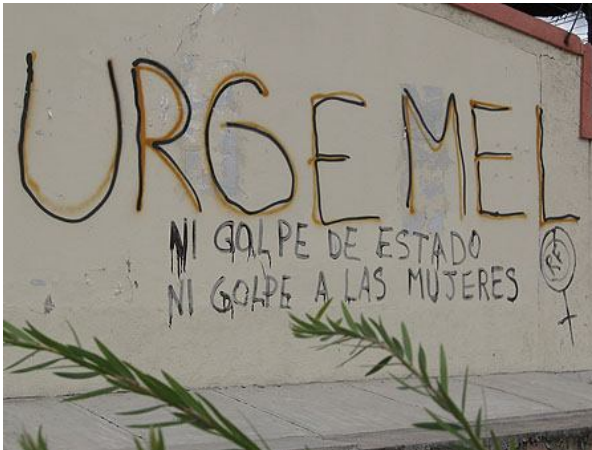 URGE MEL
NI GOLPE DE ESTADO
NI GOLPE A LAS MUJERES